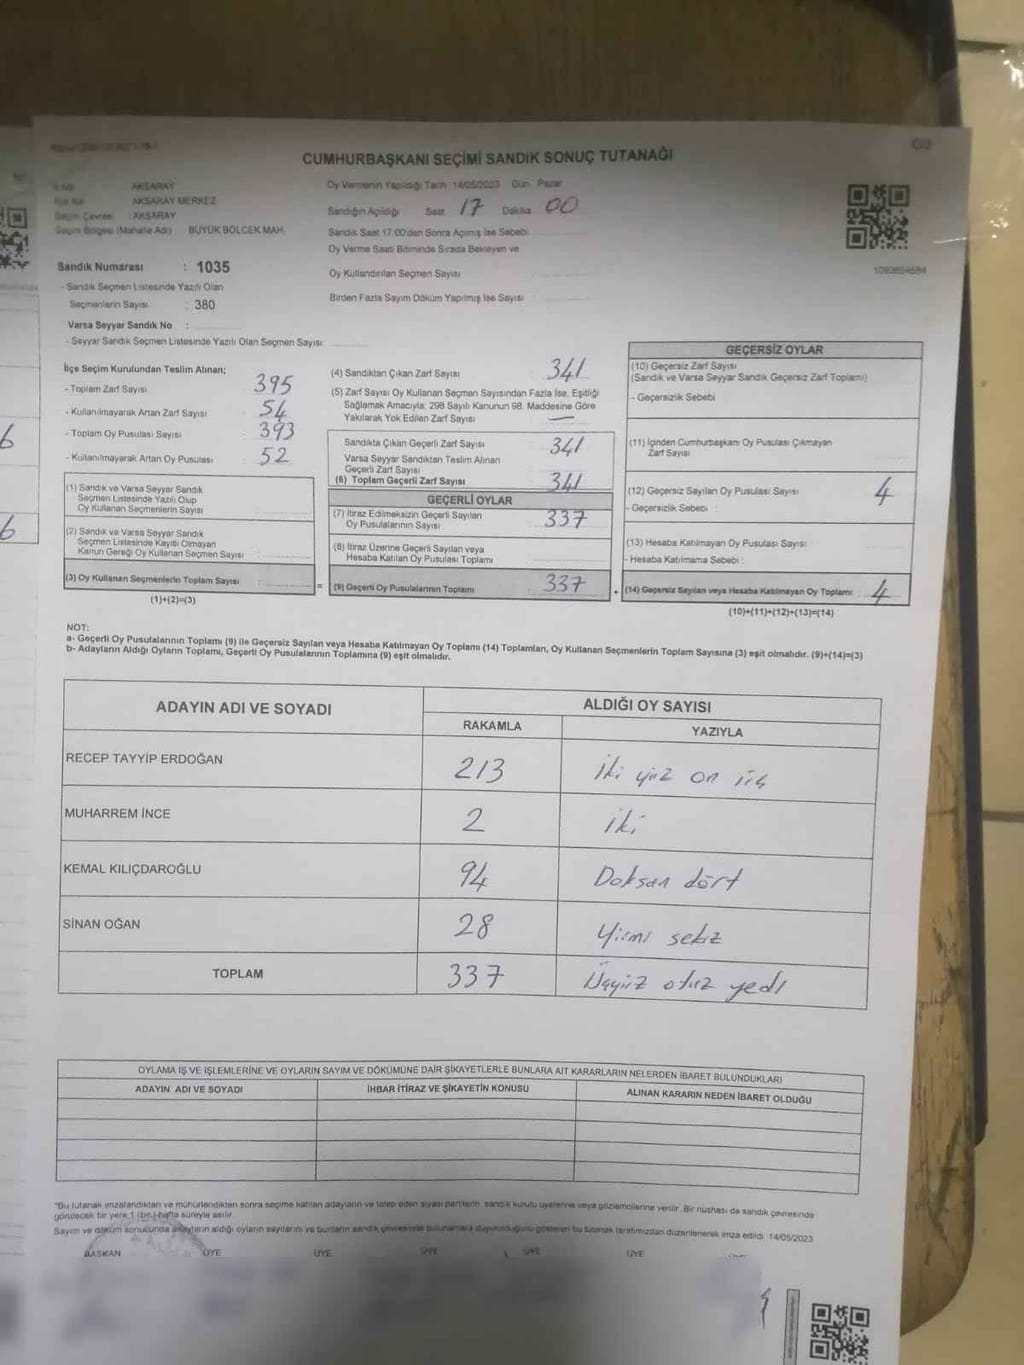 CUMHURBAŞKANI SEÇİMİ SANDIK SONUÇ TUTANAĞI
AKSARAY
AKSARAY MERKEZ
Seçim Çevresi : AKSARAY
Seçim Bölgesi (Mahalle Adı) BÜYÜK BÖLCEK MAH.
Oy Vermenin Yapıldığı Tarih 14/05/2023 Gün Pazar
Sandığın Açıldığı Saat 17 Dakika 00
Sandık Saat 17:00'den Sonra Açılmış İse Sebebi
Oy Verme Saati Bitiminde Sırada Bekleyen ve
Oy Kullandırılan Seçmen Sayısı
Birden Fazla Sayım Döküm Yapılmış İse Sayısı
1093604584
Sandık Numarası : 1035
- Sandık Seçmen Listesinde Yazılı Olan
Seçmenlerin Sayısı : 380
Varsa Seyyar Sandık No :
- Seyyar Sandık Seçmen Listesinde Yazılı Olan Seçmen Sayısı
İlçe Seçim Kurulundan Teslim Alınan;
- Toplam Zarf Sayısı : 395
- Kullanılmayarak Artan Zarf Sayısı : 54
- Toplam Oy Pusulası Sayısı : 393
- Kullanılmayarak Artan Oy Pusulası : 52
(1) Sandık ve Varsa Seyyar Sandık
Seçmen Listesinde Yazılı Olup
Oy Kullanan Seçmenlerin Sayısı
(2) Sandık ve Varsa Seyyar Sandık
Seçmen Listesinde Kayıtlı Olmayan
Kanun Gereği Oy Kullanan Seçmen Sayısı
(3) Oy Kullanan Seçmenlerin Toplam Sayısı :
(1)+(2)=(3)
(4) Sandıktan Çıkan Zarf Sayısı 341
(5) Zarf Sayısı Oy Kullanan Seçmen Sayısından Fazla İse, Eşitliği
Sağlamak Amacıyla; 298 Sayılı Kanunun 98. Maddesine Göre
Yakılarak Yok Edilen Zarf Sayısı —
Sandıkta Çıkan Geçerli Zarf Sayısı 341
Varsa Seyyar Sandıktan Teslim Alınan
Geçerli Zarf Sayısı
(6) Toplam Geçerli Zarf Sayısı 341
GEÇERLİ OYLAR
(7) İtiraz Edilmeksizin Geçerli Sayılan
Oy Pusulalarının Sayısı 337
(8) İtiraz Üzerine Geçerli Sayılan veya
Hesaba Katılan Oy Pusulası Toplamı
= (9) Geçerli Oy Pusulalarının Toplamı 337
GEÇERSİZ OYLAR
(10) Geçersiz Zarf Sayısı
(Sandık ve Varsa Seyyar Sandık Geçersiz Zarf Toplamı)
- Geçersizlik Sebebi
(11) İçinden Cumhurbaşkanı Oy Pusulası Çıkmayan
Zarf Sayısı
(12) Geçersiz Sayılan Oy Pusulası Sayısı 4
- Geçersizlik Sebebi :
(13) Hesaba Katılmayan Oy Pusulası Sayısı
- Hesaba Katılmama Sebebi :
+ (14) Geçersiz Sayılan veya Hesaba Katılmayan Oy Toplamı 4
(10)+(11)+(12)+(13)=(14)
NOT:
a- Geçerli Oy Pusulalarının Toplamı (9) ile Geçersiz Sayılan veya Hesaba Katılmayan Oy Toplamı (14) Toplamları, Oy Kullanan Seçmenlerin Toplam Sayısına (3) eşit olmalıdır. (9)+(14)=(3)
b- Adayların Aldığı Oyların Toplamı, Geçerli Oy Pusulalarının Toplamına (9) eşit olmalıdır.
ADAYIN ADI VE SOYADI
ALDIĞI OY SAYISI
RAKAMLA YAZIYLA
RECEP TAYYİP ERDOĞAN 213 iki yüz on üç
MUHARREM İNCE 2 iki
KEMAL KILIÇDAROĞLU 94 Doksan dört
SİNAN OĞAN 28 Yirmi sekiz
TOPLAM 337 Üçyüz otuz yedi
OYLAMA İŞ VE İŞLEMLERİNE VE OYLARIN SAYIM VE DÖKÜMÜNE DAİR ŞİKAYETLERLE BUNLARA AİT KARARLARIN NELERDEN İBARET BULUNDUKLARI
ADAYIN ADI VE SOYADI İHBAR İTİRAZ VE ŞİKAYETİN KONUSU ALINAN KARARIN NEDEN İBARET OLDUĞU
*Bu tutanak imzalandıktan ve mühürlendikten sonra seçime katılan adayların ve talep eden siyasi partilerin sandık kurulu üyelerine veya gözlemcilerine verilir. Bir nüshası da sandık çevresinde
görülecek bir yere 1 (bir) hafta süreyle asılır.
Sayım ve döküm sonucunda adayların aldığı oyların sayılarını ve bunların sandık çevresiyle bulunduğunu gösteren bu tutanak tarafımızdan düzenlenerek imza edildi. 14/05/2023
BAŞKAN ÜYE ÜYE ÜYE ÜYE ÜYE